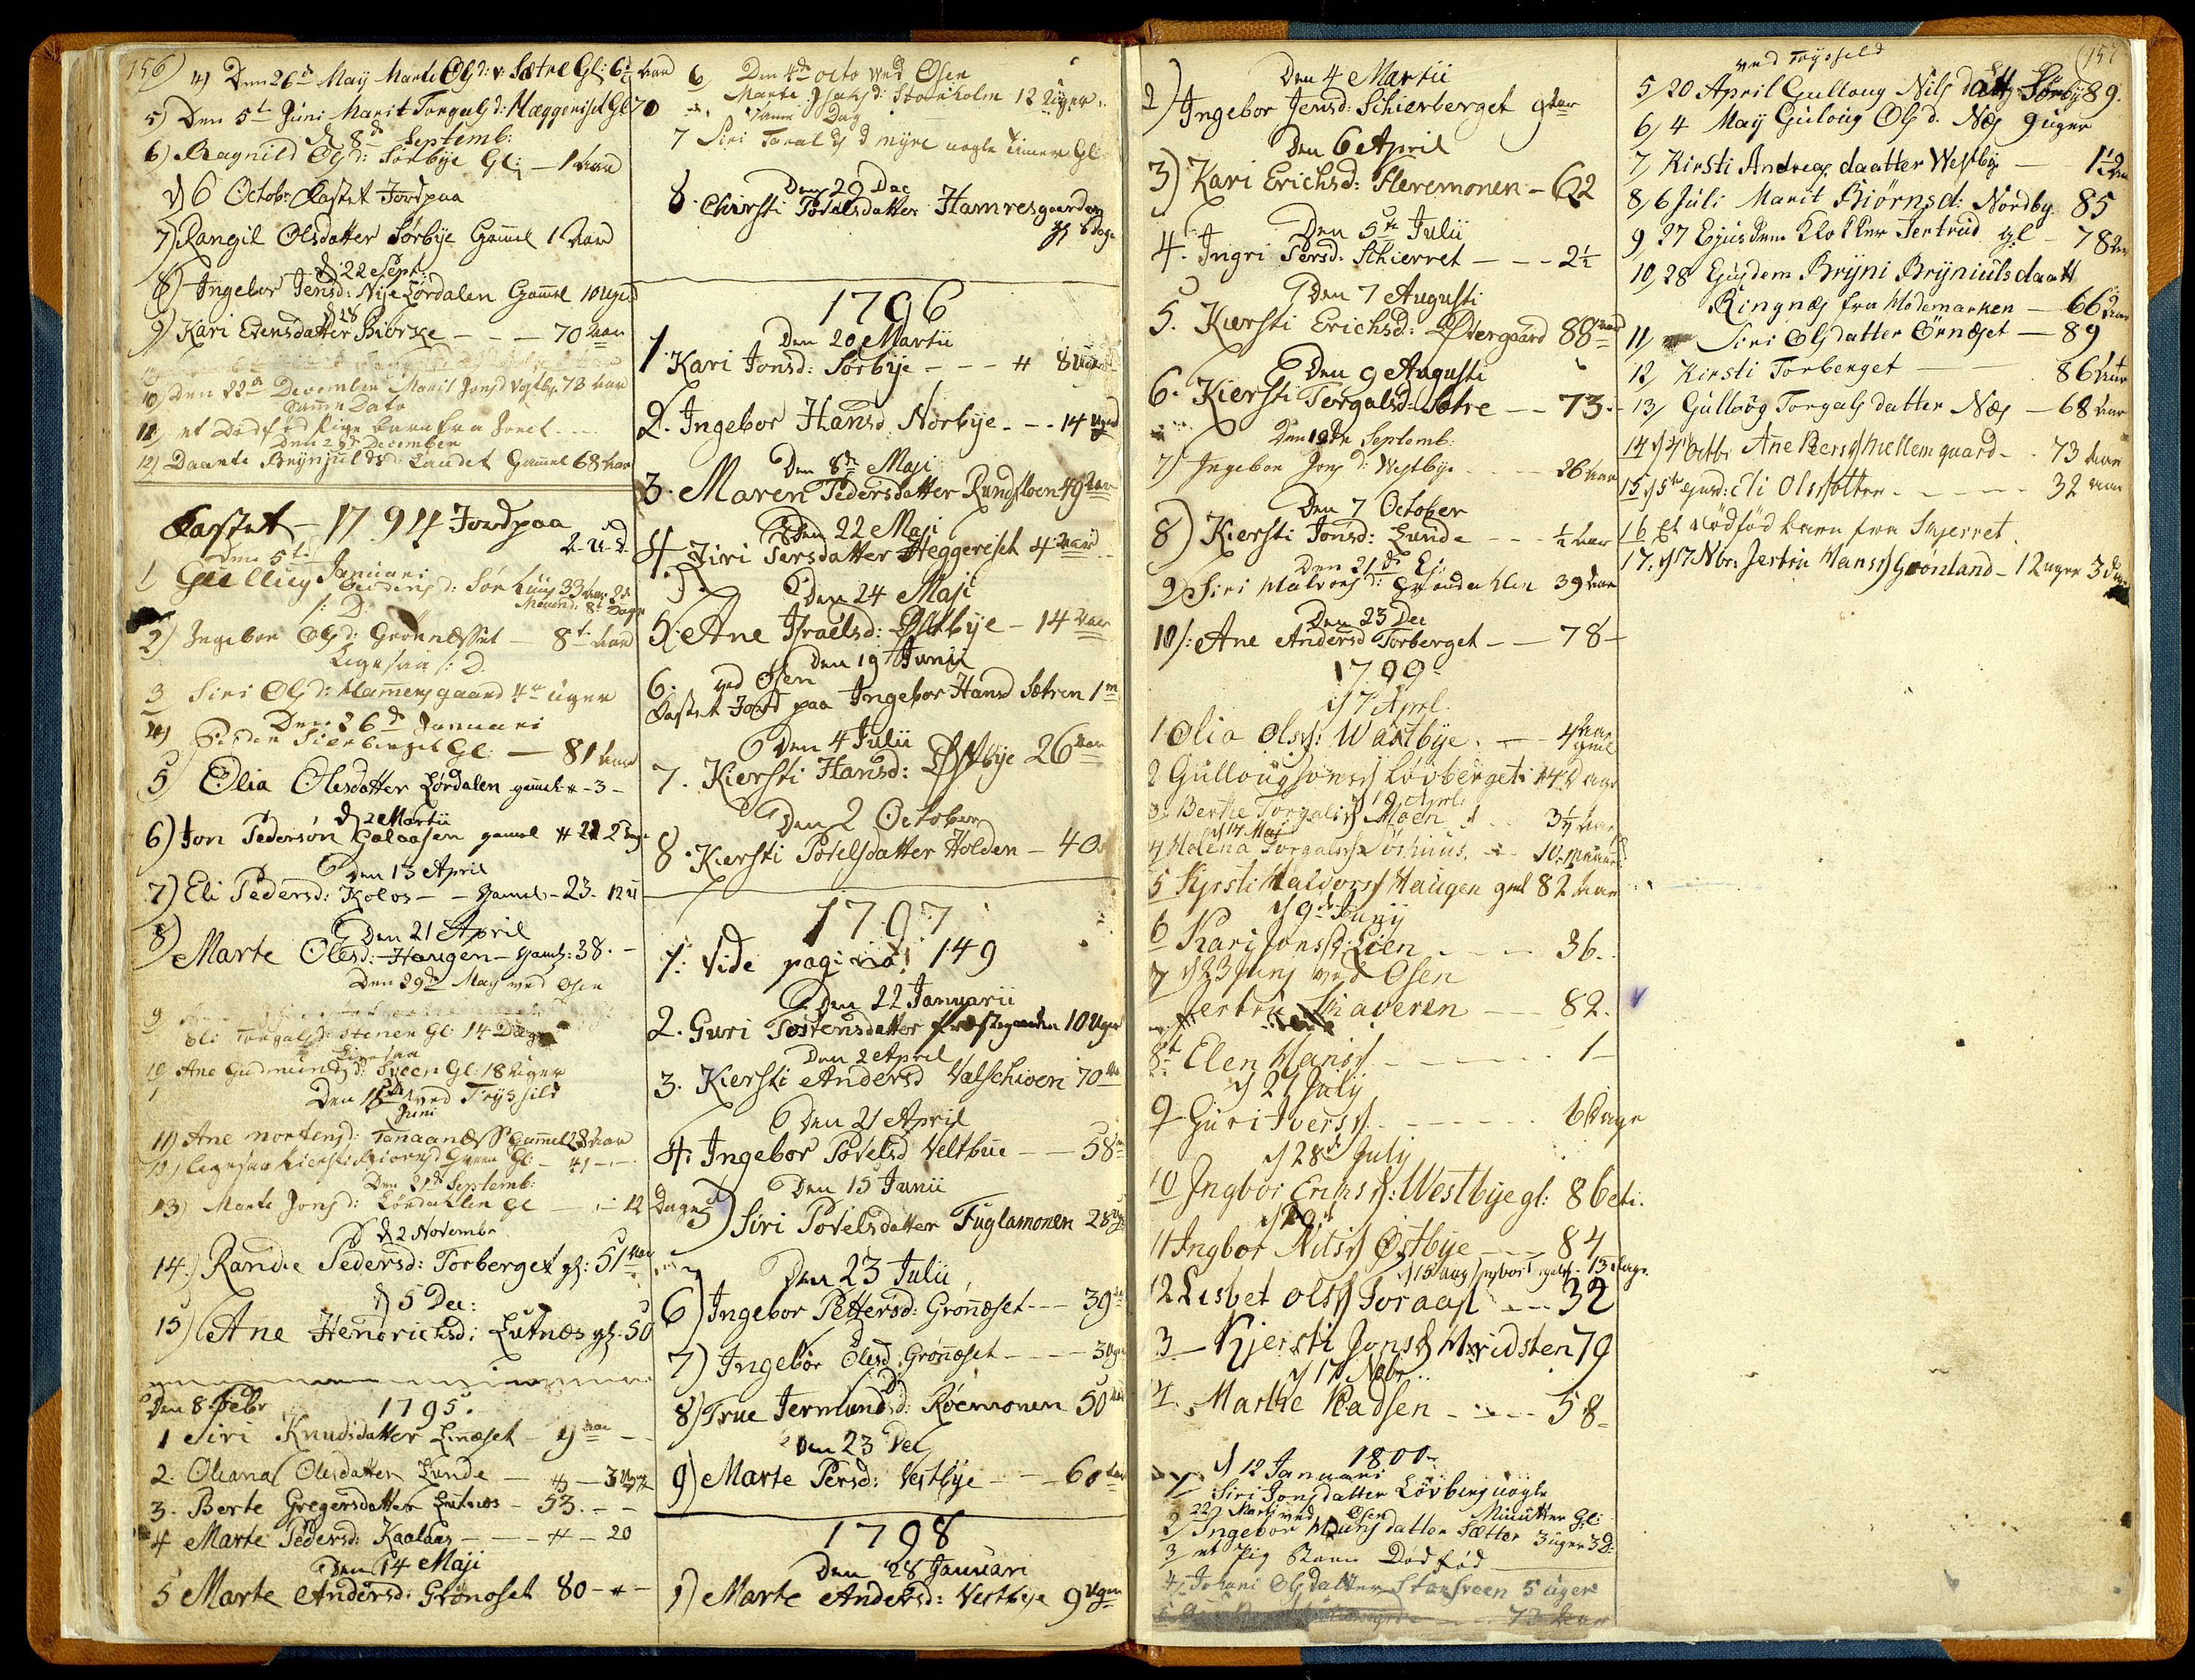 156
4) Den 26de May Marte Olsd: v. Sætre Gl: 6 aar
5) Den 5te Juni Marit Torgalsd: Hæggeriset Gl 70
d 8de Septemb:
6) Ragnild Olsd: Sørbye Gl: - 1 aar
d 6 Octobr: Kastet Jord paa
7) Rangil Olsdatter Sørbye Gamel 1 aar
d 22 Sept:
8) Ingebor Jensd: Nye Lørdalen Gamel 10 Uger
d 28
9) Kari Evensdatter Biørke - - - 70 aar
10) Den 22de December Marit Jonsd Vestby 73 aar
Samme Dato
11) et Dødfød Pige barn fra
Den 26de December
12) Daarte Brynjulfsd: Landet Gamel 68 aar
Kastet - 1794 Jord paa
Den 5te Januari
1 Gullug Sørhuus 33 aar
2) Ingebor Olsd: Grønnæsset - 8te aar
Ligesaa /: D.
3 Siri Olsd: Hammersgaard 4re uger
Den 26de Januari
4) Gl: - 81 aar
5) Olia Olesdatter Lørdalen gamel - 3 -
d 2 Martii
6) Jon Pedersøn Galaasen gamel 2 Dage
Den 13 April
7) Eli Pedersd: Kolos - - gamel - 23. 12 u
Den 21 April
8) Marte Olesd: Haugen - gamel: 38. -
Den 29de May ved Osen
9 Eli Torgalsd: Stenen Gl: 14 Dage
Ligesaa
10 Ane Gudmundsd: Sveen Gl: 18 Uger
Den ved Tryssild
Juni
11) Ane Mortensd: Tanaanæss Gamel 28 aar
12) Ligesaa Kiersti Biørnsd Gl - 41 - -
Den 21de Septemb:
13) Marte Jonsd: Lørdahlen Gl - - 12 Dage
d 2 Novembr
14.) Randie Pedersd: Torberget gl: 51 aar
d 5 Dec:
15) Ane Hendrichsd: Lutnæs gl: 50
Den 8 Febr 1795.
1 Siri Knudsdatter Linæset - 9 aar - -
2. Oliana Olesdatter Lunde - 3 Uger
3. Berte Gregersdatter Lutnæs - 53. - -
4 Marte Pedersd: Kaalaas - - - 20
Den 14 Maji
5 Marte Andersd: Grønoset 80 - -
6 Den 4de Octo ved Osen
Marte Isaksd: Stockholm 12 Uger
Samme Dag
7 Siri Toralds d Myre nogle Timer Gl
Den 29 Dec
8. Chirsti Povelsdatter Hamresgaarden
gl 8 dage
1796
Den 20 Martii
1. Kari Jonsd: Sørbye - - - 8 Uger
2. Ingebor Hansd Norbye. - - 14 Uger
Den 8de Maji
3. Maren Pedersdatter Rundfloen 49 aar
Den 22 Maji
4 Siri Persdatter Heggeriset 4 aar
Den 24 Maji
5. Ane Israelsd: Østbye - 14 aar
Den 19 Junii
6. ved Osen
Kastet Jord paa Ingebor Hansd Sætren 1 m
Den 4 Julii
7. Kiersti Hansd: Østbye 26 aar
Den 2 October
8. Kiersti Povelsdatter Holden - 40
1797
1: Vide pagina 149
Den 22 Januarii
2. Guri Tostensdatter Præstegaarden 10 Uger
Den 2 April
3. Kiersti Andersd Valschioen 70
Den 21 April
4. Ingebor Povelsd Veltbue - - 58
Den 15 Junii
5) Siri Povelsdatter Fuglamonen 28
Den 23 Julii
6) Ingebor Pettersd: Grønæset - - - 39
7) Ingebor Olesd: Grønæset - - - 3 Uger
8) True Jermundsd: Røemonen 50
Den 23 Dec
9) Marte Persd: Vestbye - - - 60
1798
Den 28 Januari
1) Marte Andersd: Vestbye 9 Uger
Den 4 Martii
2) Ingebor Jensd: Schierberget 9 aar
Den 6 April
3) Kari Erichsd: Fleremonen - 62
Den 5te Julii
4. Ingri Persd: Schierret - - - 2½
Den 7 Augusti
5. Kiersti Erichsd: Øvergaard 88 aar
Den 9 Augusti
6. Kiersti Torgalsd: Sætre - - 73.
Den 19de Septemb:
7) Ingebor Jonsd: Westbye - - 26 aar
Den 7 October
8) Kiersti Jonsd: Lunde - - - ½ aar
Den 21de Ej:
9) Siri Halvorsd: 39 aar
Den 23 Dec
10/: Ane Andersd Torberget - - 78 -
1799
d 7 Aprl.
1 Olia Olsd: Wæstbye. - - 4 aar gml
2 Gulloug Jonsd Løvberget: 14 Dage
d 19 Aprl.
3. Berthe Torgalsd Moen - - 3½ aar
d 14 Maj
4 Malena Torgalsd Sørhuus. - - 10. Maaneder
5 Kjrsti Halvorsd Haugen gml 82 aar
d 9de Junij
6 Kari Jonsd: Lien - - - 36.
7 d 23 Junj ved Osen
Jertru Skaveren - - - 82.
8t Elen Hansd - - - - - 1 -
d 21 July
9 Guri Iversd - - - - - 6 Dage
d 28de July
10 Ingbor Eriksd: Westbye gl: 86
d 29d
11 Ingbor Nilsd Østbye - - - 84
d 15 Aug 13 dage
12 Lisbet Olsd Toraas - - - 32
3 - Kjersti Jonsd Mæidsten 79
d 17 Nobr..
4. Marthe Radsen - - - - 58 -
d 12 Januari 1800 -
1 Siri Jonsdatter Løvberg nogle Minutter Gl:
22 Martj ved Osen
2) Ingebor datter Sætter 3 uger 3 D:
3 et Pig Barn Dødfød
4, Johani Olsdatter Storsveen 5 uger
72 aar
157
ved Trysseld
5/ 20 April Gulloug Nilsdaatt: Sørby 89.
6/ 4 May Guloug Olsd. Næs 9 uger
7, Kirsti Andreas daatter Westby - 1½
8, 6 Juli Marit Biørnsd: Nordby. 85
9 27 Ejusdem Klokker Jertrud gl - 78 aar
10, 28 Ejusdem Bryni Bryniulsdaatt
Ringnæs fra Hedemarken - 66 aar
11/ Siri Olsdatter Ørnæset - 89
12/ Kirsti Torberget - - 86 aar
13/ Gulloug Torgalsdatter Næs - 68 aar
14 d 4 Octbr Ane Persd Mellemgaard - - 73 aar
15 d 5te Ejusd: Eli Olsdotter - - - - - 32 aar
16 Et dødfød barn fra Skjerret.
17. d 17 Nbr: Jertru Hansd Grønland - 12 uger 3 dage